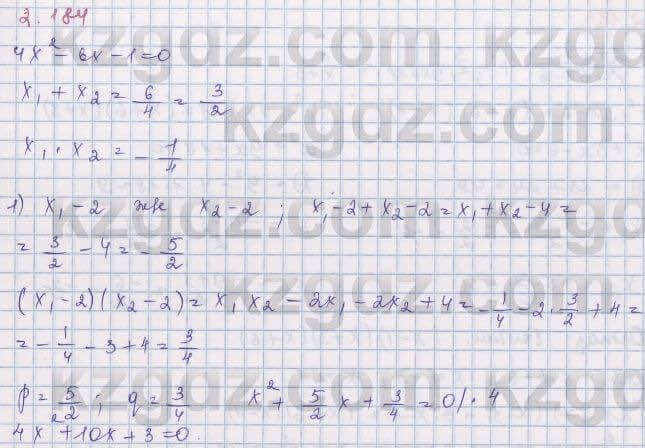 2.184
4x² - 6x - 1 = 0
x₁ + x₂ = 6/4 = 3/2
x₁ · x₂ = - 1/4
1) x₁ - 2 және x₂ - 2 ; x₁ - 2 + x₂ - 2 = x₁ + x₂ - 4 =
= 3/2 - 4 = - 5/2
(x₁ - 2)(x₂ - 2) = x₁ x₂ - 2x₁ - 2x₂ + 4 = - 1/4 - 2 · 3/2 + 4 =
= - 1/4 - 3 + 4 = 3/4
p = 5/2 ; q = 3/4 x² + 5/2 x + 3/4 = 0 / · 4
4x² + 10x + 3 = 0.
kzgdz.com